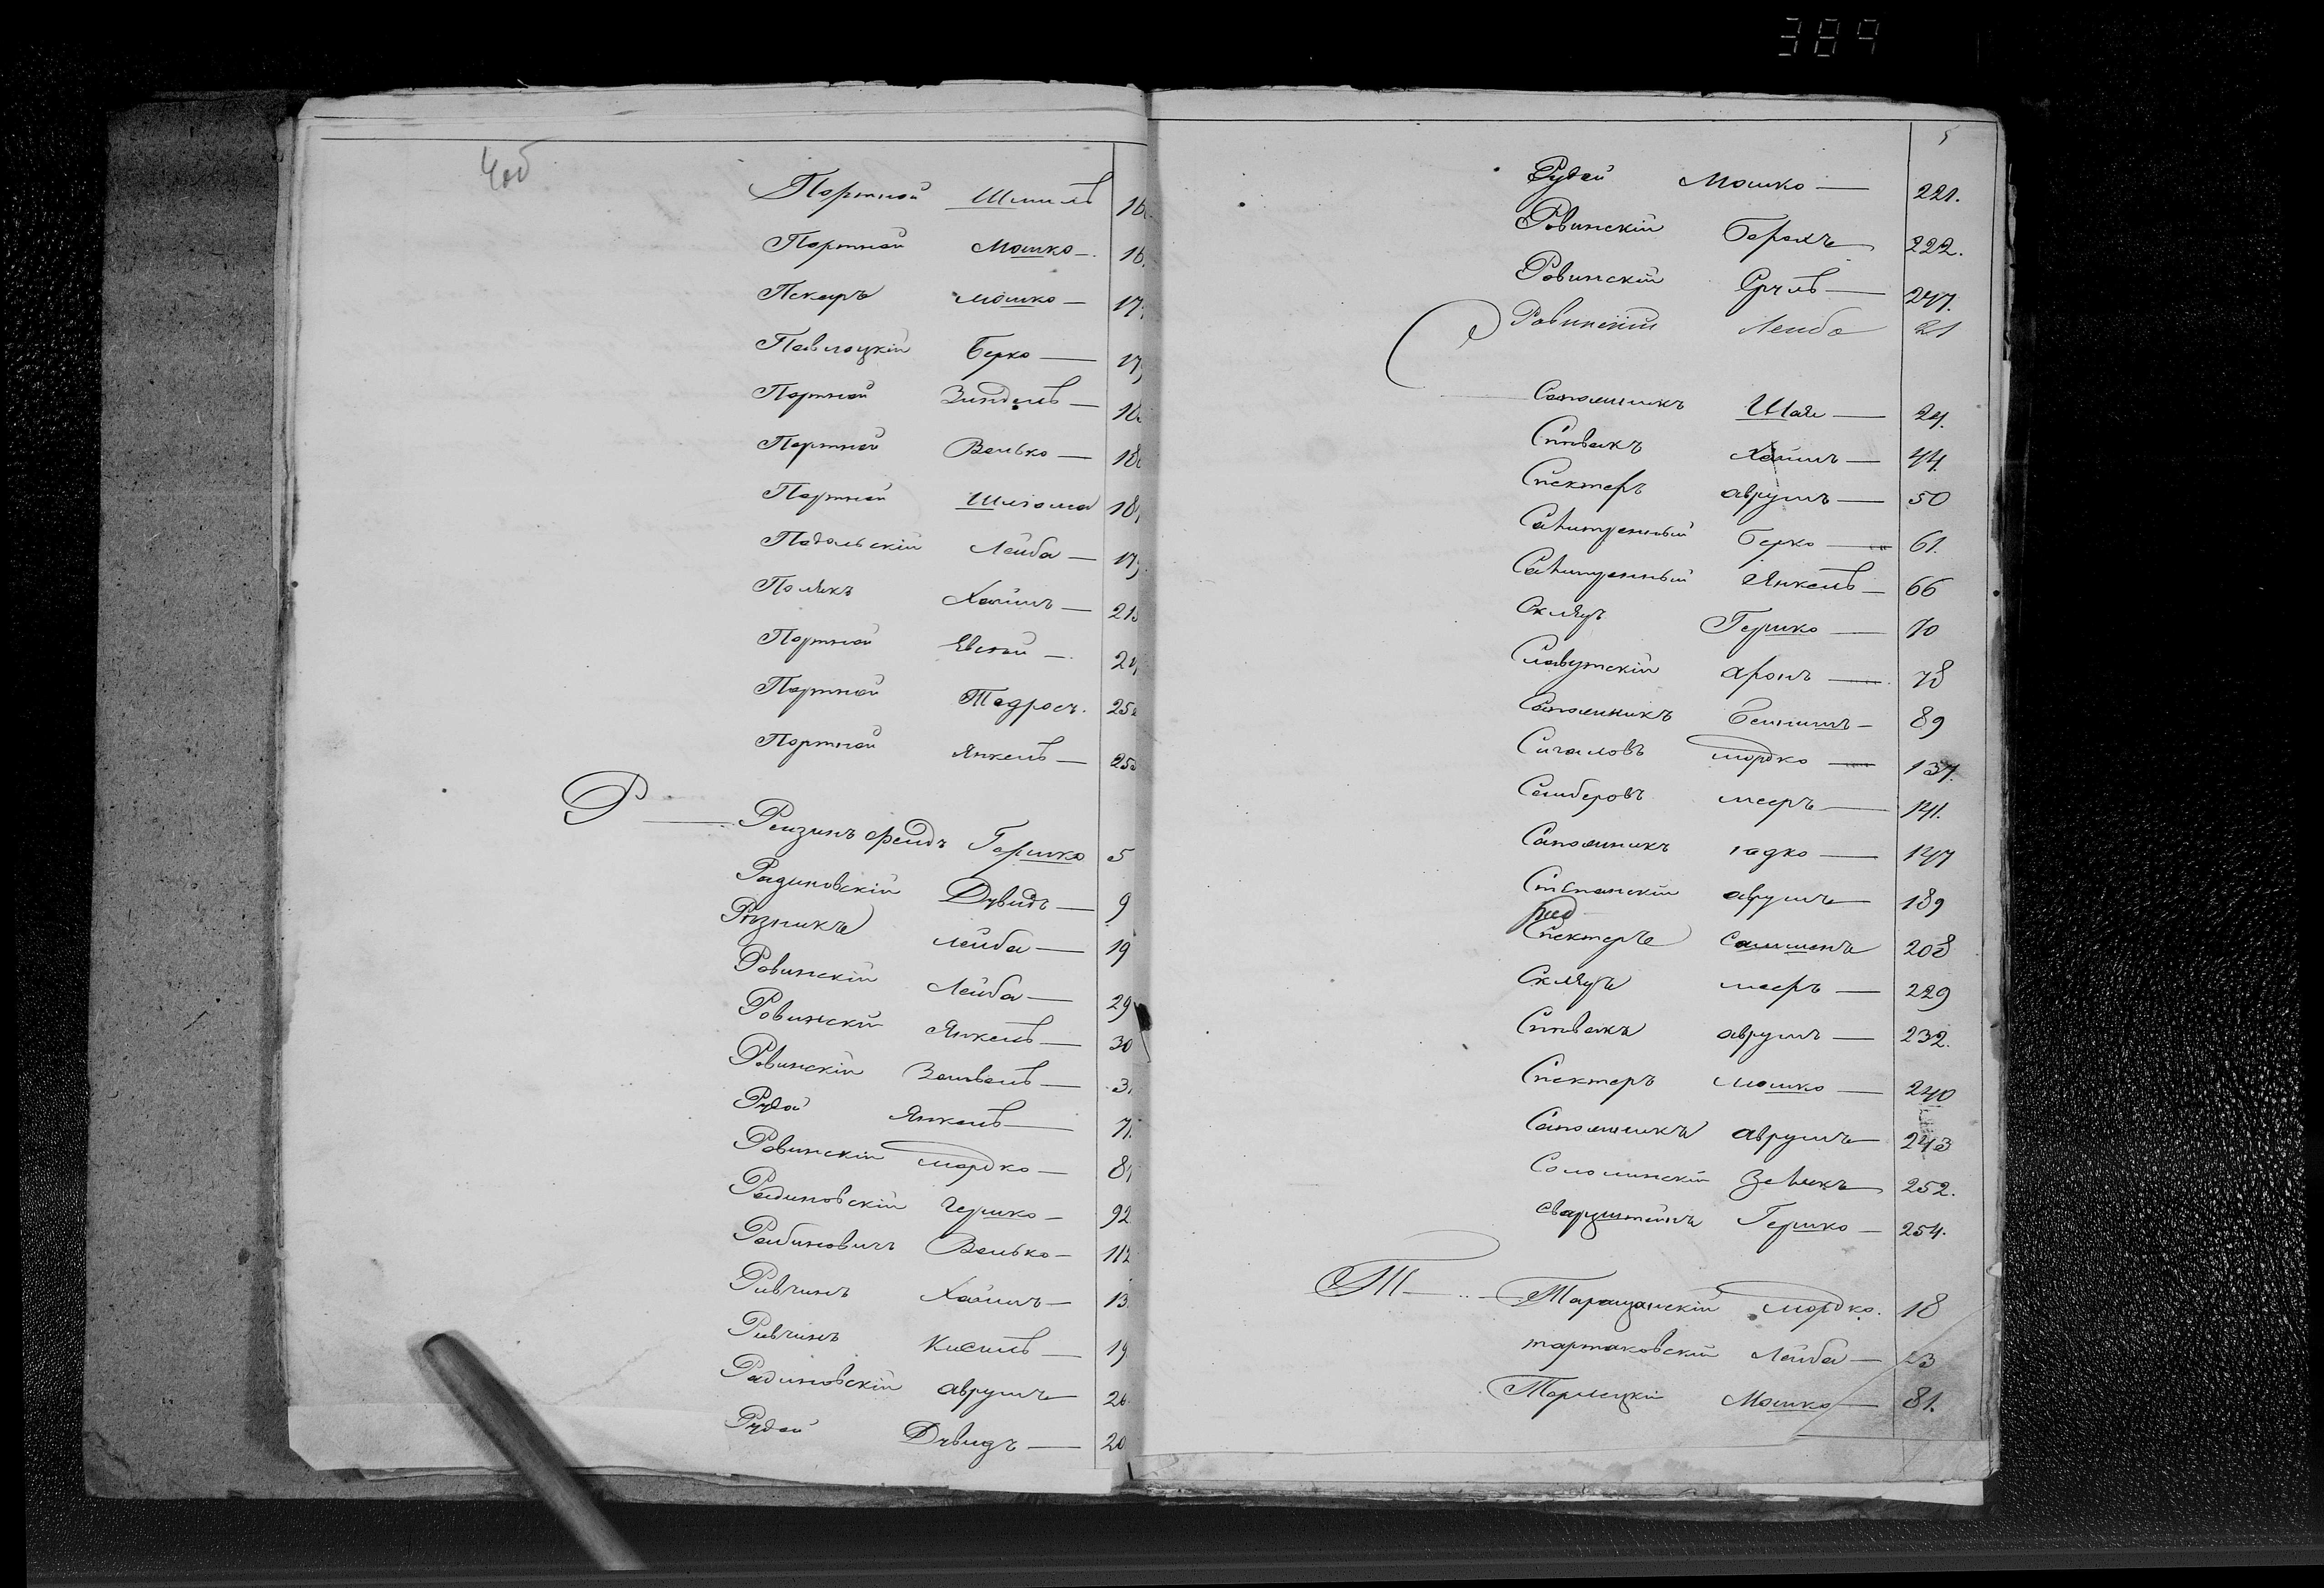 389
4об
Портной Шмиль 16
Портной Мошко 16
Пекаръ Мошко 17
Павлоцкій Берко 17
Портной Зиндель 18
Портной Волько 18
Портной Шліома 18
Подольскій Лейба 17
Полякъ Хаимъ 21
Портной Евсей 24
Портной Тодросъ 25
Портной Янкель 25
Р
Рейзинъ фейдъ Гершко 5
Радиновскій Дувидъ 9
Рѣзникъ Лейба 19
Ровинскій Лейба 29
Ровинскій Янкель 30
Ровинскій Зейвель 3
Рудой Янкель 71
Ровинскій Мордко 8
Радиновскій Гершко 92
Рабиновичъ Волько 112
Ривчинъ Хаимъ 13
Ривчинъ Кисиль 19
Радиновскій Аврумъ 20
Рудой Дувидъ 20
5
Рудой Мошко 221.
Ровинскій Борохъ 222.
Ровинскій Сруль 247.
Ровинскій Лейба 21
С
Сапожникъ Шая 24.
Спивакъ Хаимъ 44
Спекторъ Аврумъ 50
Берко 61.
Янкель 66
Скляръ Гершко 70
Славутскій Аронъ 78
Сапожникъ Бенюмъ 89
Сигаловъ Мордко 137.
Мееръ 141.
Сапожникъ 147
Степанскій Аврумъ 189
Спекторъ 208
Скляръ Мееръ 229
Спивакъ Аврумъ 232.
Спекторъ Мошко 240
Сапожникъ Аврумъ 243
Сололинскій 252.
Сварцштейнъ Гершко 254.
Т
Таращанскій Мордко. 18
Тартаковскій Лейба 23
Торлецкій Мошко 81.